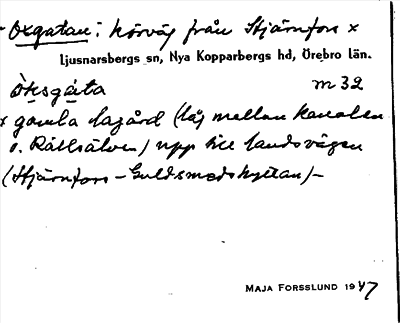 - Oxgatan: körväg från Stjärnfors x
Ljusnarsbergs sn, Nya Kopparbergs hd, Örebro län.
òksgàta m 32
x gamla lagård (låg mellan kanalen
o. Rällsälven) upp till landsvägen
(Stjärnfors - Guldsmedshyttan)-
MAJA FORSSLUND 1947